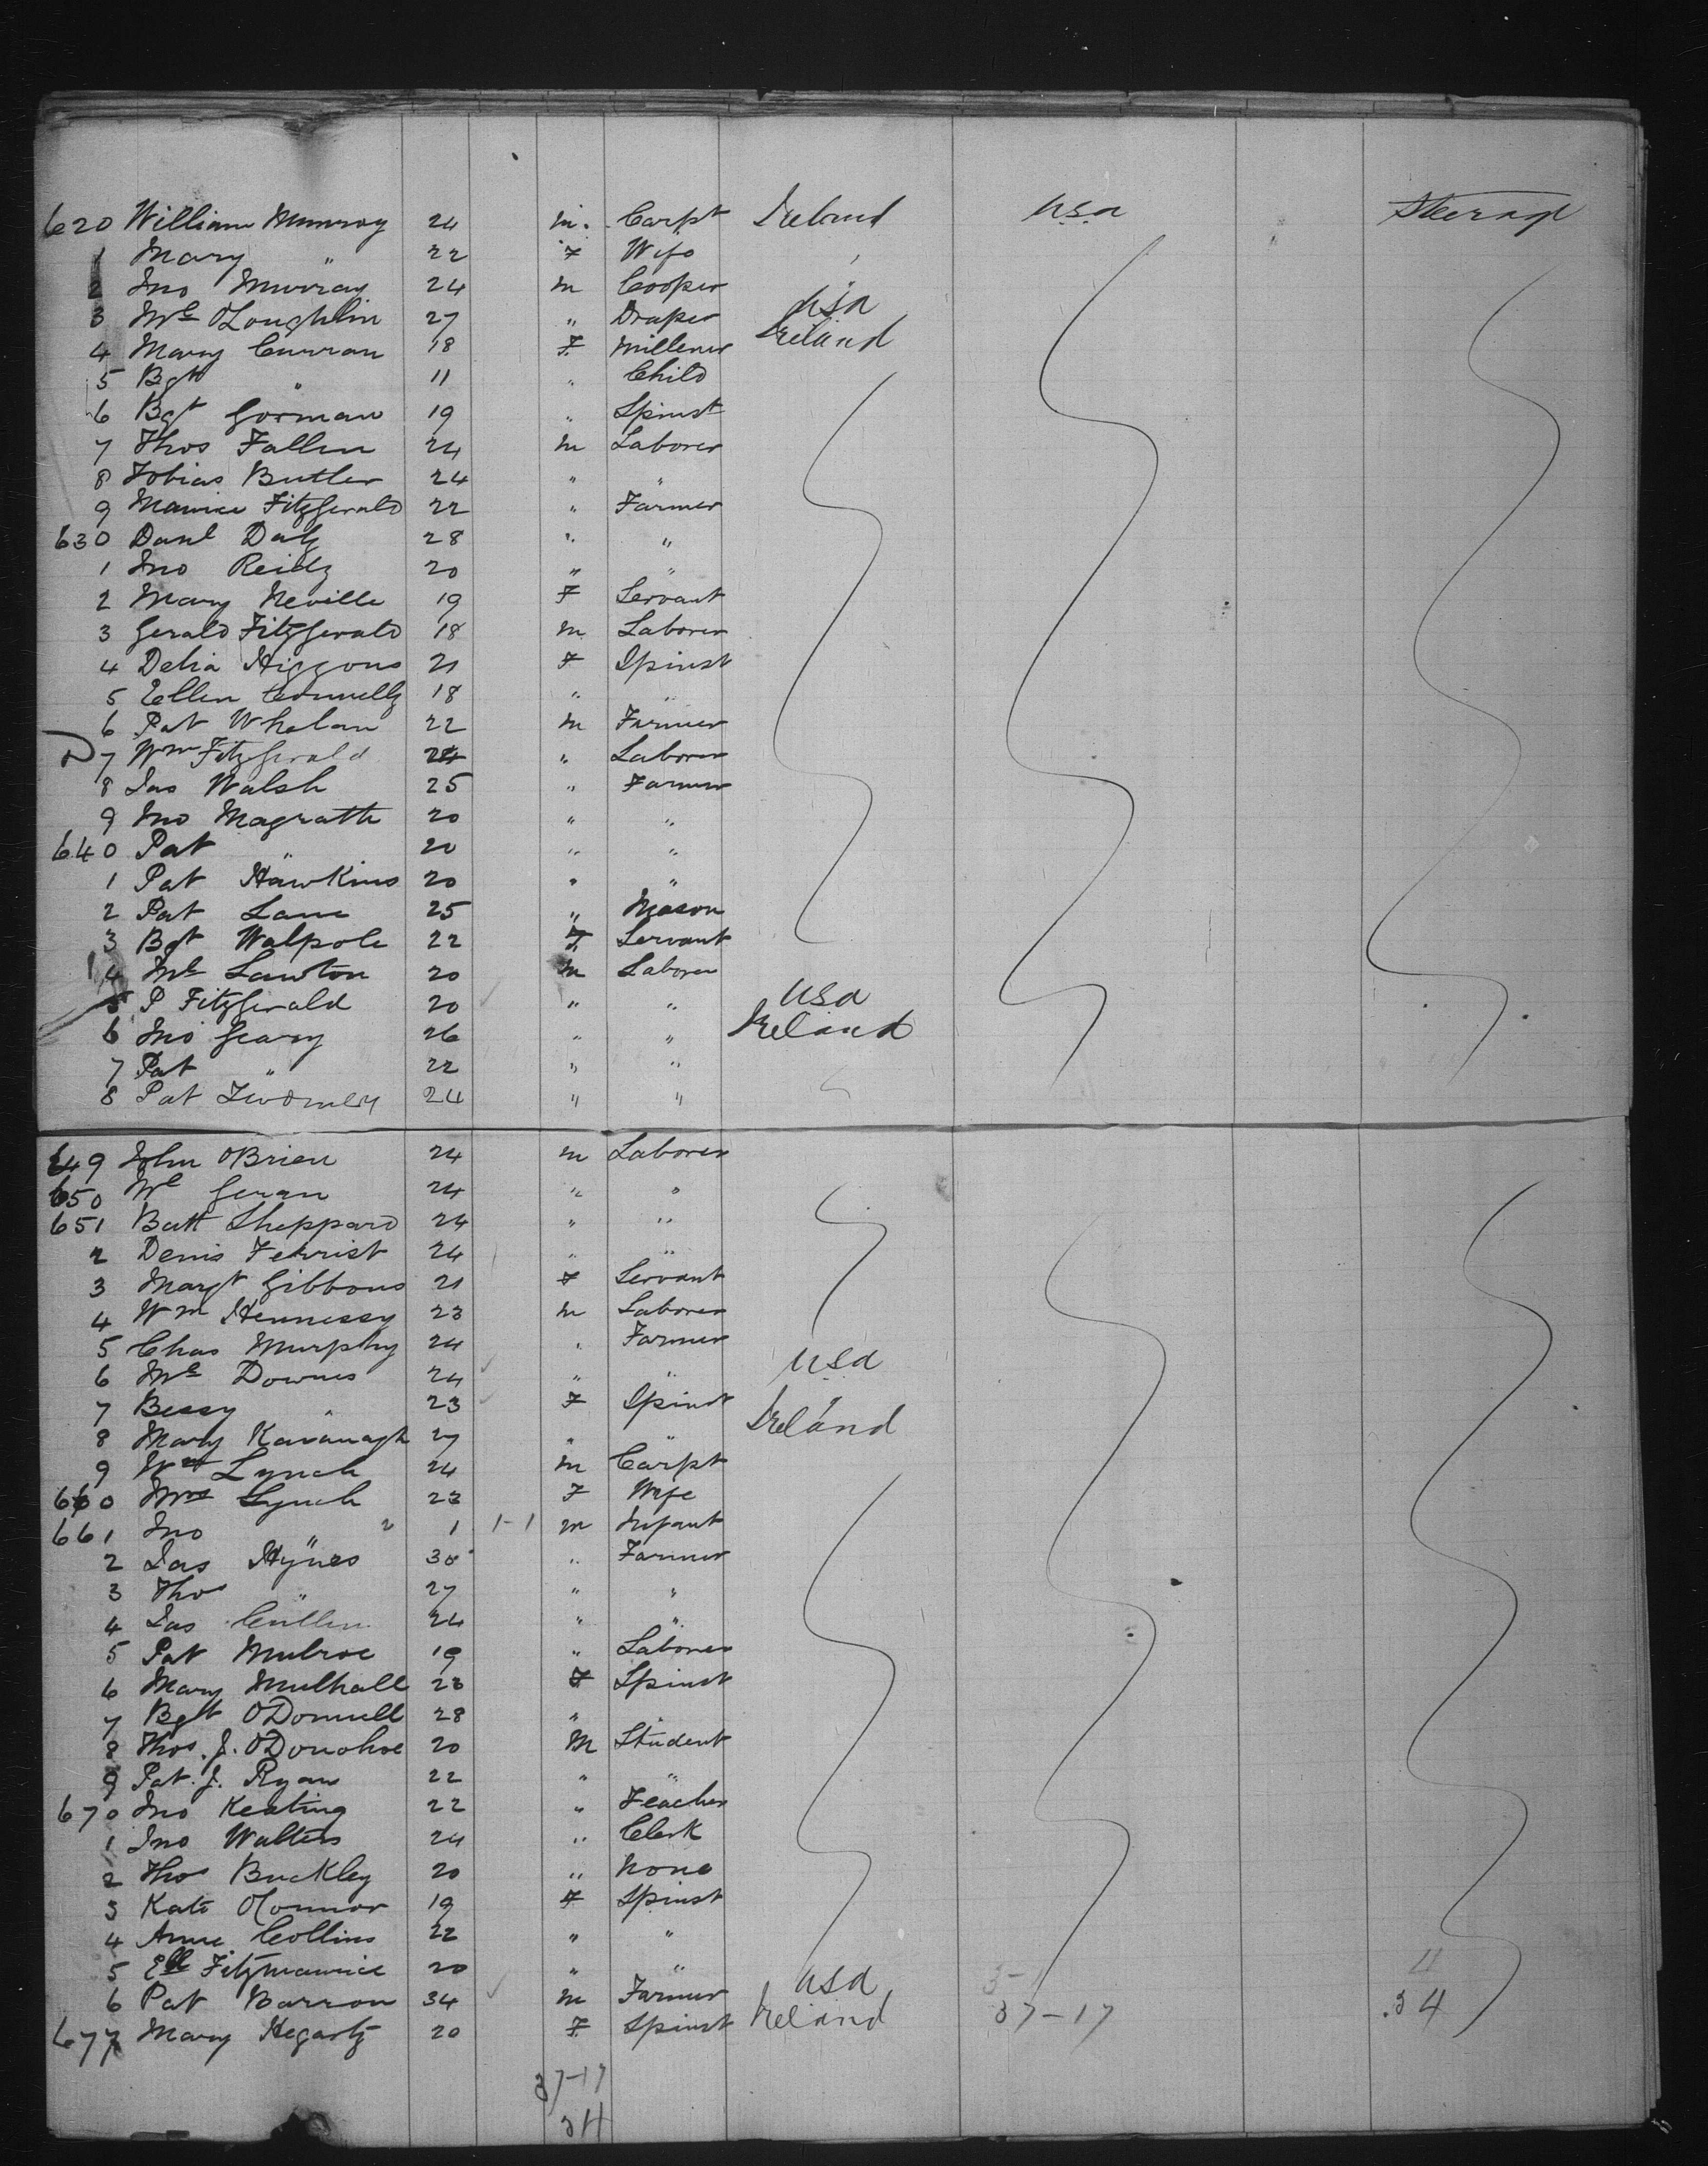 620 William Munroy 24 m. Carpt Ireland USA Steerage
1 Mary " 22 F Wife
2 Jno Murray 24 m Cooper
3 Ml O'Loughlin 27 " Draper USA
4 Mary Curran 18 F. Milliner Ireland
5 Bgt " 11 " Child
6 Bgt Gorman 19 " Spinst
7 Thos Fallen 24 m Laborer
8 Tobias Butler 24 " "
9 Maurice Fitzgerald 22 " Farmer
630 Danl Daly 28 " "
1 Jno Reidy 20 " "
2 Mary Neville 19 F Servant
3 Gerald Fitzgerald 18 m Laborer
4 Delia Higgons 21 F Spinst
5 Ellen Connelly 18 " "
6 Pat Whelan 22 m Farmer
7 Wm Fitzgerald 24 " Laborer
8 Jas Walsh 25 " Farmer
9 Jno Magrath 20 " "
640 Pat " 20 " "
1 Pat Hawkins 20 " "
2 Pat Lane 25 " Mason
3 Bgt Walpole 22 F. Servant
4 Ml Lawton 20 m Laborer
5 P Fitzgerald 20 " " USA
6 Jno Geary 26 " " Ireland
7 Pat " 22 " "
8 Pat Twomey 24 " "
649 John O'Brien 24 m Laborer
650 Ml Geran 24 " "
651 Batt Sheppard 24 " "
2 Denis Ferrist 24 " "
3 Margt Gibbons 21 F Servant
4 Wm Hennessy 23 m Laborer
5 Chas Murphy 24 " Farmer
6 Ml Downes 24 " " USA
7 Bessy " 23 F Spinst
8 Mary Kavanagh 27 " " Ireland
9 Wm Lynch 24 m Carpt
660 Mrs Lynch 23 F Wife
661 Jno " 1 1-1 m Infant
2 Jas Hynes 30 " Farmer
3 Thos " 27 " "
4 Jas Cullen 24 " "
5 Pat Mulroe 19 " Laborer
6 Mary Mulhall 23 F Spinst
7 Bgt O'Donnell 28 " "
8 Thos. J. O'Donohoe 20 M Student
9 Pat. J. Ryan 22 " "
670 Jno Keating 22 " Teacher
1 Jno Walters 24 " Clerk
2 Thos Buckley 20 " None
3 Kate O'Connor 19 F Spinst
4 Anne Collins 22 " "
5 Ell Fitzmaurice 20 " "
6 Pat Barron 34 m Farmer USA
677 Mary Hegarty 20 F. Spinst Ireland 37-17 .34
37-17
34